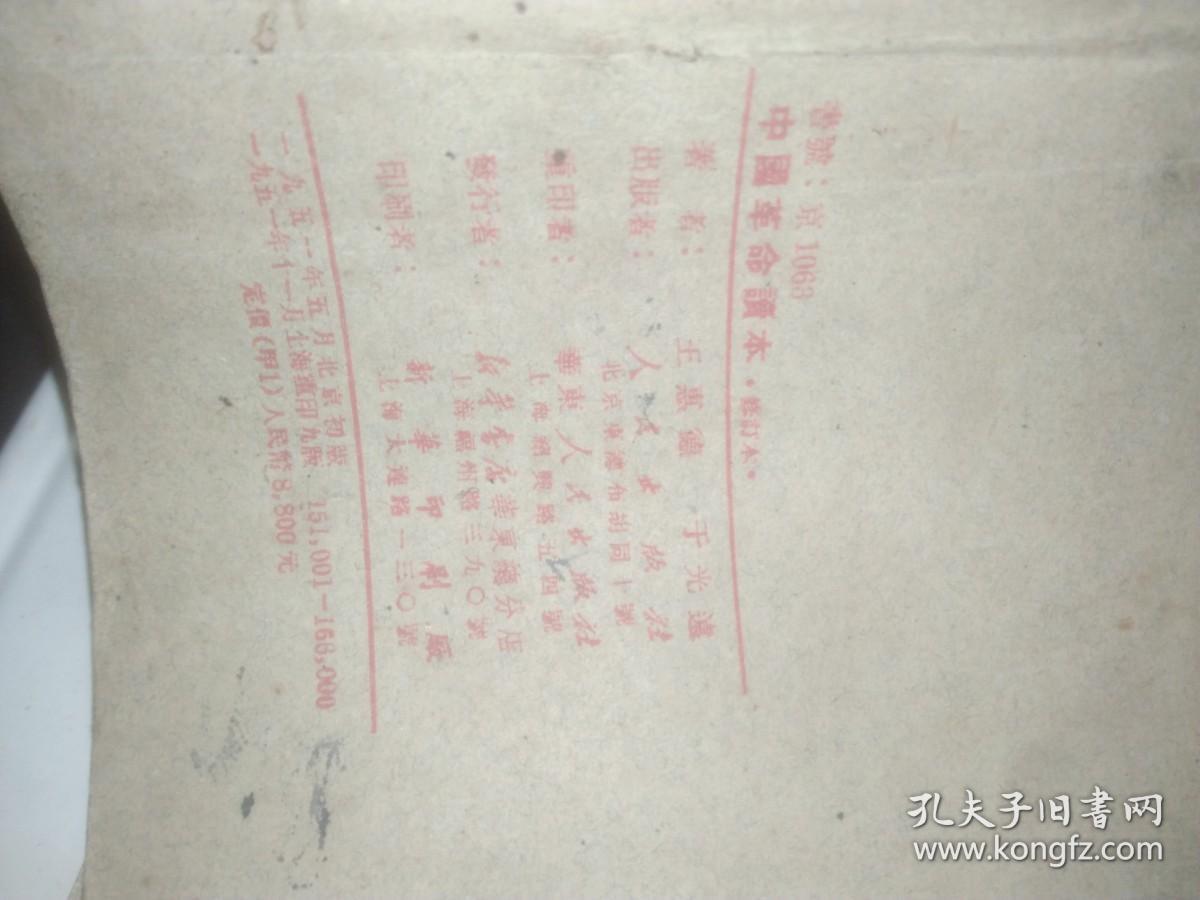 書號：京1063
中國革命讀本·修訂本·
著者：王惠德 于光遠
出版者：人民出版社
北京東總布胡同十號
重印者：華東人民出版社
上海紹興路五四號
發行者：新華書店華東總分店
上海福州路三九〇號
印刷者：新華印刷廠
上海大連路一三〇號
一九五一年五月北京初版
一九五一年十一月上海重印九版
151,001-166,000
定價(甲1)人民幣8,800元
孔夫子旧书网
www.kongfz.com